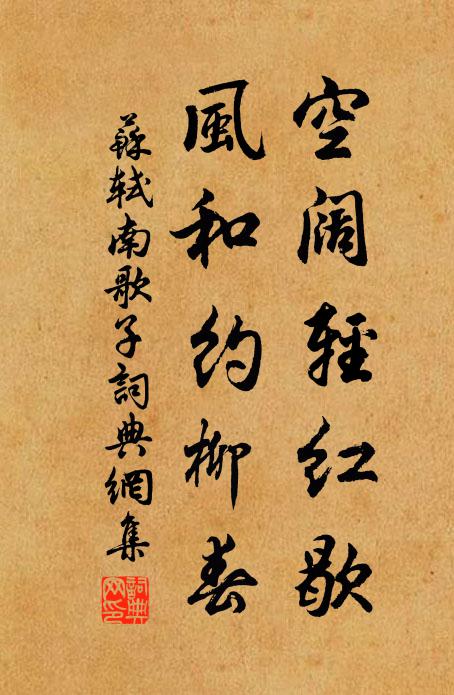 空阔輕紅歇
風和約柳春
蘇軾南歌子詞典網集
詞典網印